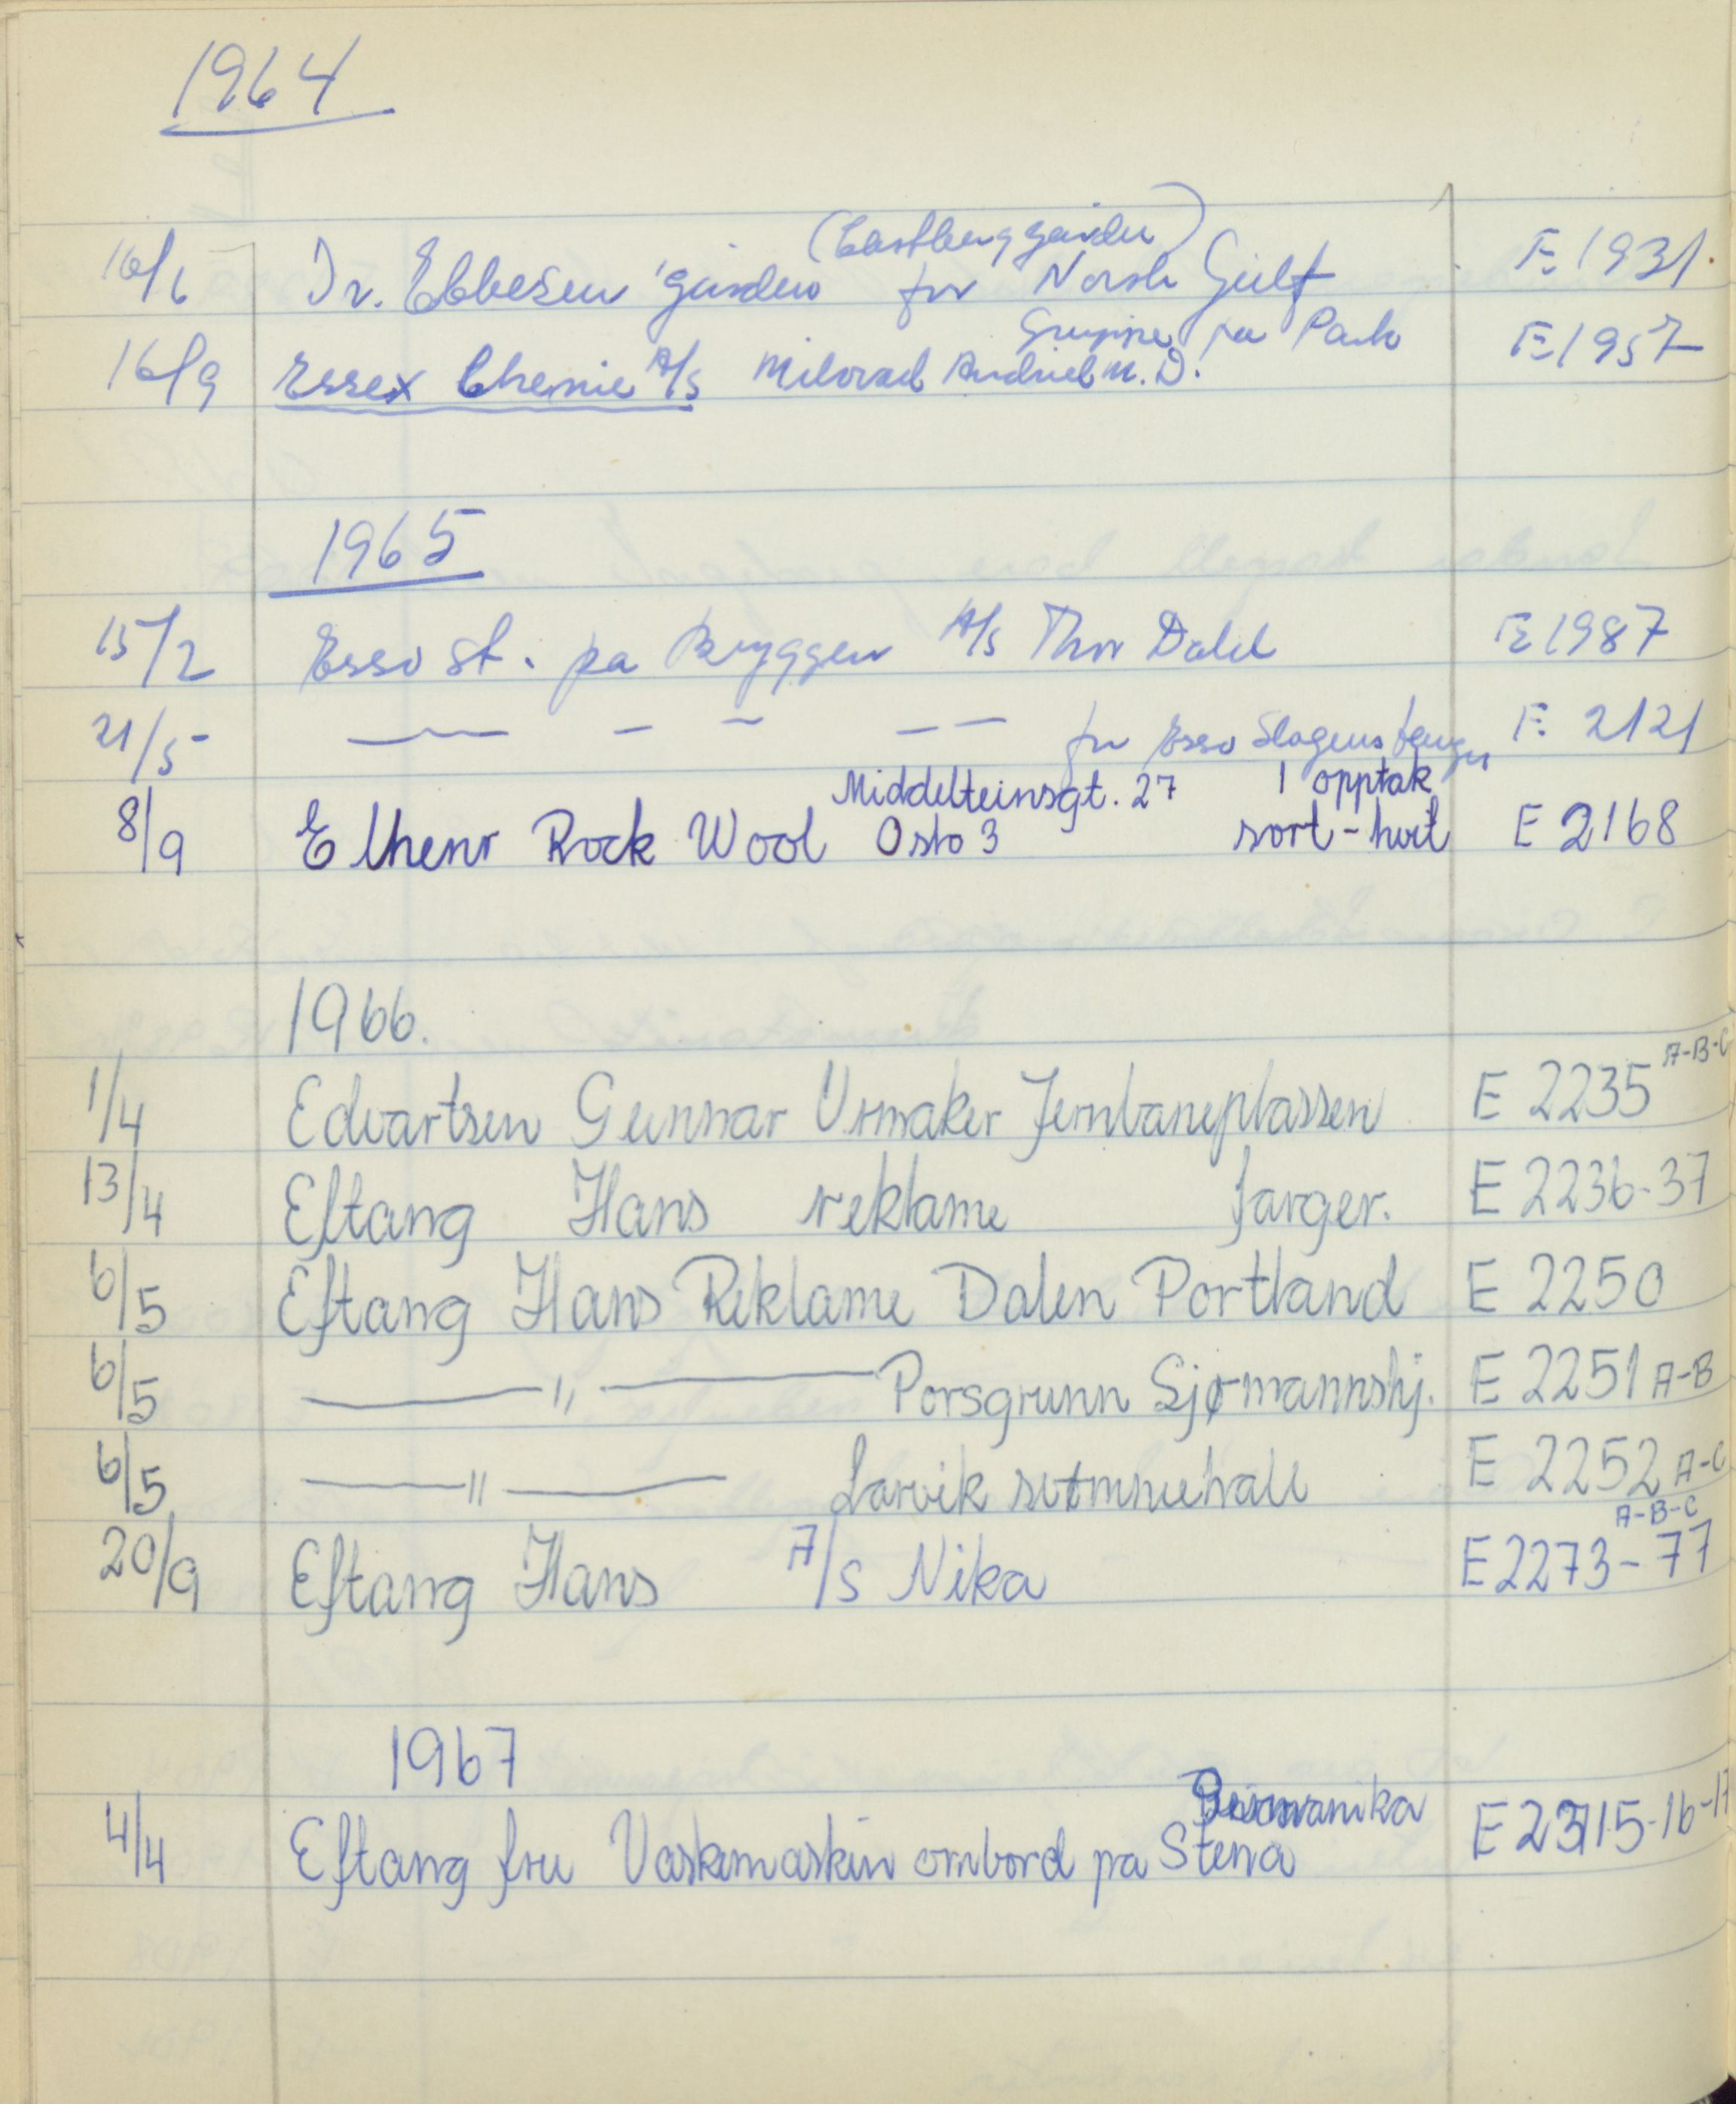 1964
(Castberggården)
16/6 Dr. Ebbesen gården for Norsk Gulf E. 1931.
Gruppe på Park
16/9 Essex Chemie A/S Milorad M.D. E. 1957
1965
15/2 Esso st. på Bryggen A/S Thor Dahl E 1987
21/5 — - - - - for Esso Slagenstangen E. 2121
Middeltunsgt. 27 1 opptak
8/9 Elhenr Rock Wool Oslo 3 sort-hvit E 2168
1966.
1/4 Edvartsen Gunnar Urmaker Jernbaneplassen E 2235 A-B-C
13/4 Eftang Hans reklame farger. E 2236-37
6/5 Eftang Hans Reklame Dalen Portland E 2250
6/5 —— " —— Porsgrunn Sjømannshj. E 2251 A-B
6/5 —— " —— Larvik svømmehall E 2252 A-C
A-B-C
20/9 Eftang Hans A/S Nika E 2273-77
1967
4/4 Eftang fru Vaskemaskin ombord på Stena E 2315-16-17